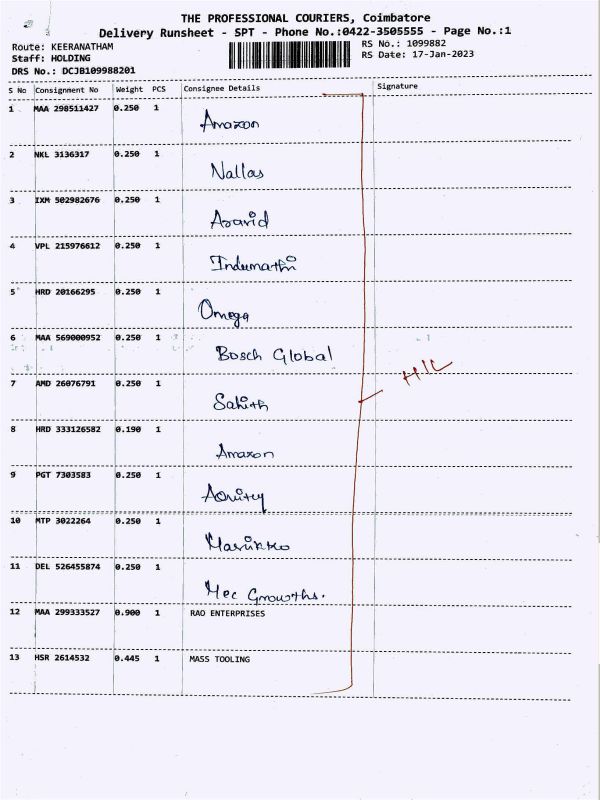 THE PROFESSIONAL COURIERS, Coimbatore
Delivery Runsheet - SPT - Phone No.:0422-3505555 - Page No.:1
Route: KEERANATHAM
Staff: HOLDING
DRS No.: DCJB109988201
RS No.: 1099882
RS Date: 17-Jan-2023
S No Consignment No Weight PCS Consignee Details Signature
1 MAA 298511427 0.250 1 Amazon
2 NKL 3136317 0.250 1 Nallas
3 IXM 502982676 0.250 1 Aravid
4 VPL 215976612 0.250 1 Indumathi
5 HRD 20166295 0.250 1 Omega
6 MAA 569000952 0.250 1 Bosch Global
7 AMD 26076791 0.250 1 Sakith
8 HRD 333126582 0.190 1 Amazon
9 PGT 7303583 0.250 1
10 MTP 3022264 0.250 1
11 DEL 526455874 0.250 1 Mec Growths.
12 MAA 299333527 0.900 1 RAO ENTERPRISES
13 HSR 2614532 0.445 1 MASS TOOLING